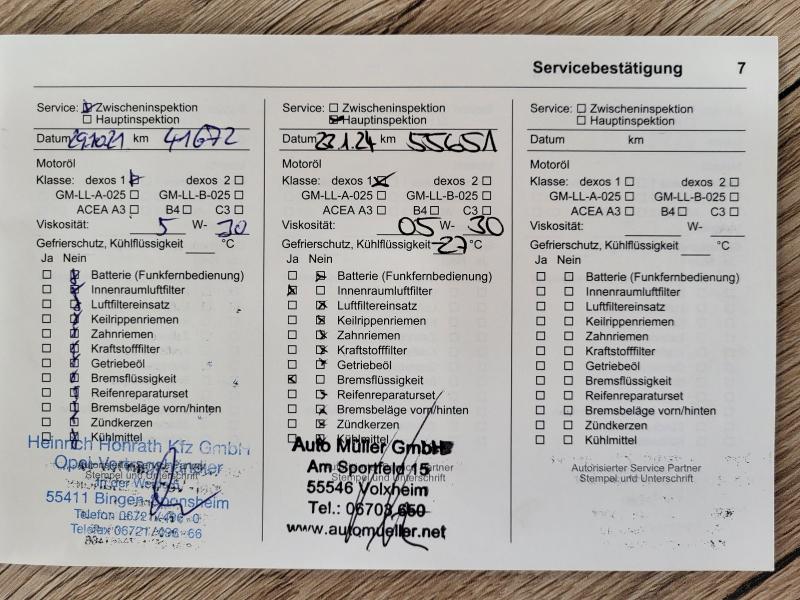 Servicebestätigung 7
Service: Zwischeninspektion
Hauptinspektion
Datum 29.10.21 km 41672
Motoröl
Klasse: dexos 1 dexos 2
GM-LL-A-025 GM-LL-B-025
ACEA A3 B4 C3
Viskosität: 5 W- 30
Gefrierschutz, Kühlflüssigkeit °C
Ja Nein
Batterie (Funkfernbedienung)
Innenraumluftfilter
Luftfiltereinsatz
Keilrippenriemen
Zahnriemen
Kraftstofffilter
Getriebeöl
Bremsflüssigkeit
Reifenreparaturset
Bremsbeläge vorn/hinten
Zündkerzen
Kühlmittel
Heinrich Honrath Kfz GmbH
Autorisierter Service Partner
Stempel und Unterschrift
55411 Bingen-Sponsheim
Telefon 06721/496-0
Telefax 06721/496-66
Service: Zwischeninspektion
Hauptinspektion
Datum 23.1.24 km 55651
Motoröl
Klasse: dexos 1 dexos 2
GM-LL-A-025 GM-LL-B-025
ACEA A3 B4 C3
Viskosität: 05 W- 30
Gefrierschutz, Kühlflüssigkeit -27 °C
Ja Nein
Batterie (Funkfernbedienung)
Innenraumluftfilter
Luftfiltereinsatz
Keilrippenriemen
Zahnriemen
Kraftstofffilter
Getriebeöl
Bremsflüssigkeit
Reifenreparaturset
Bremsbeläge vorn/hinten
Zündkerzen
Kühlmittel
Auto Müller GmbH
Autorisierter Service Partner
Am Sportfeld 15
Stempel und Unterschrift
55546 Volxheim
Tel.: 06703 650
www.automueller.net
Service: Zwischeninspektion
Hauptinspektion
Datum km
Motoröl
Klasse: dexos 1 dexos 2
GM-LL-A-025 GM-LL-B-025
ACEA A3 B4 C3
Viskosität: W-
Gefrierschutz, Kühlflüssigkeit °C
Ja Nein
Batterie (Funkfernbedienung)
Innenraumluftfilter
Luftfiltereinsatz
Keilrippenriemen
Zahnriemen
Kraftstofffilter
Getriebeöl
Bremsflüssigkeit
Reifenreparaturset
Bremsbeläge vorn/hinten
Zündkerzen
Kühlmittel
Autorisierter Service Partner
Stempel und Unterschrift